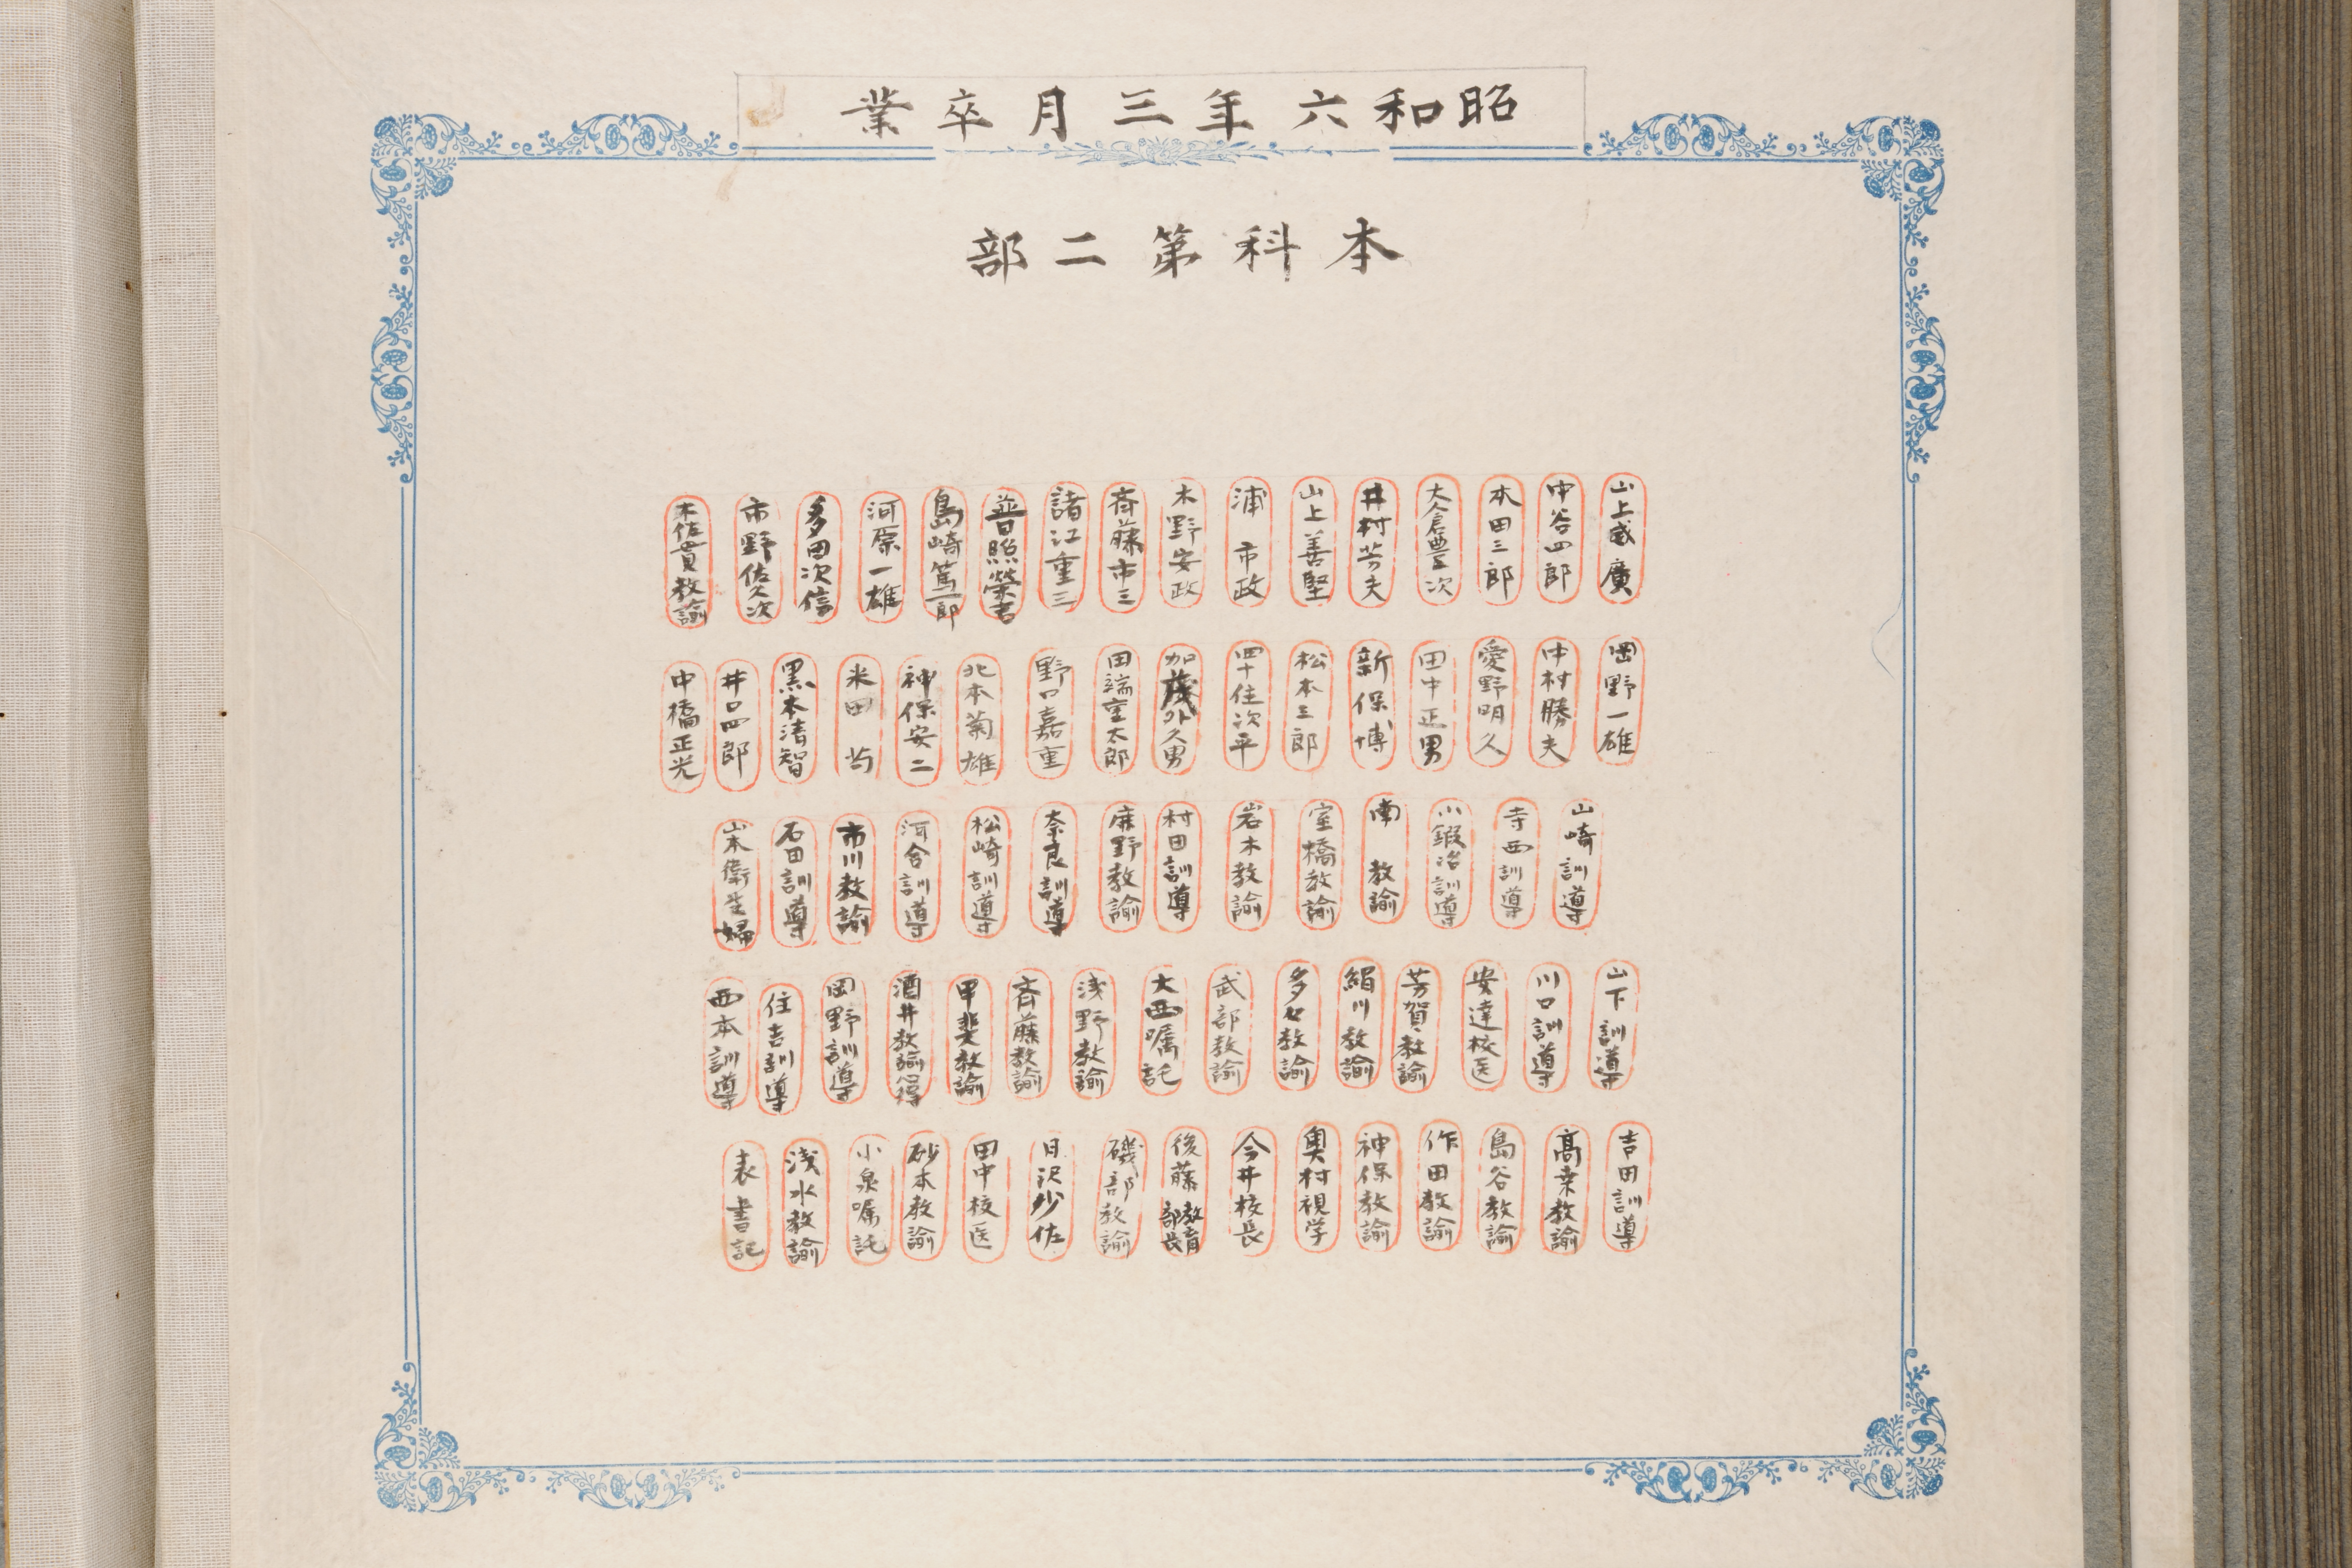 昭和六年三月卒業
本科第二部
山上威廣
中谷四郎
本田三郎
大倉豊次
井村芳夫
山上善堅
浦市政
木野安政
斉藤市三
諸江重三
普照榮
島崎篤一郎
河原一雄
多田次信
市野佐久次
木佐貫教諭
岡野一雄
中村勝夫
愛野明久
田中正男
新保博
松本三郎
四十住次平
加茂外久男
田端室太郎
野口嘉重
北本菊雄
神保安二
米田
黒本清智
井口四郎
中橋正光
山崎訓導
寺西訓導
小鍛冶訓導
南教諭
室橋教諭
岩木教諭
村田訓導
麻野教諭
奈良訓導
松崎訓導
河合訓導
市川教諭
石田訓導
山本衛生婦
山下訓導
川口訓導
安達校医
芳賀教諭
絹川教諭
多々教諭
武部教諭
大西嘱託
浅野教諭
斉藤教諭
甲斐教諭
酒井教諭
岡野訓導
住吉訓導
西本訓導
吉田訓導
髙桒教諭
島谷教諭
作田教諭
神保教諭
奥村視学
今井校長
後藤教育部長
磯部教諭
日沢少佐
田中校医
砂本教諭
小泉嘱託
浅水教諭
表書記